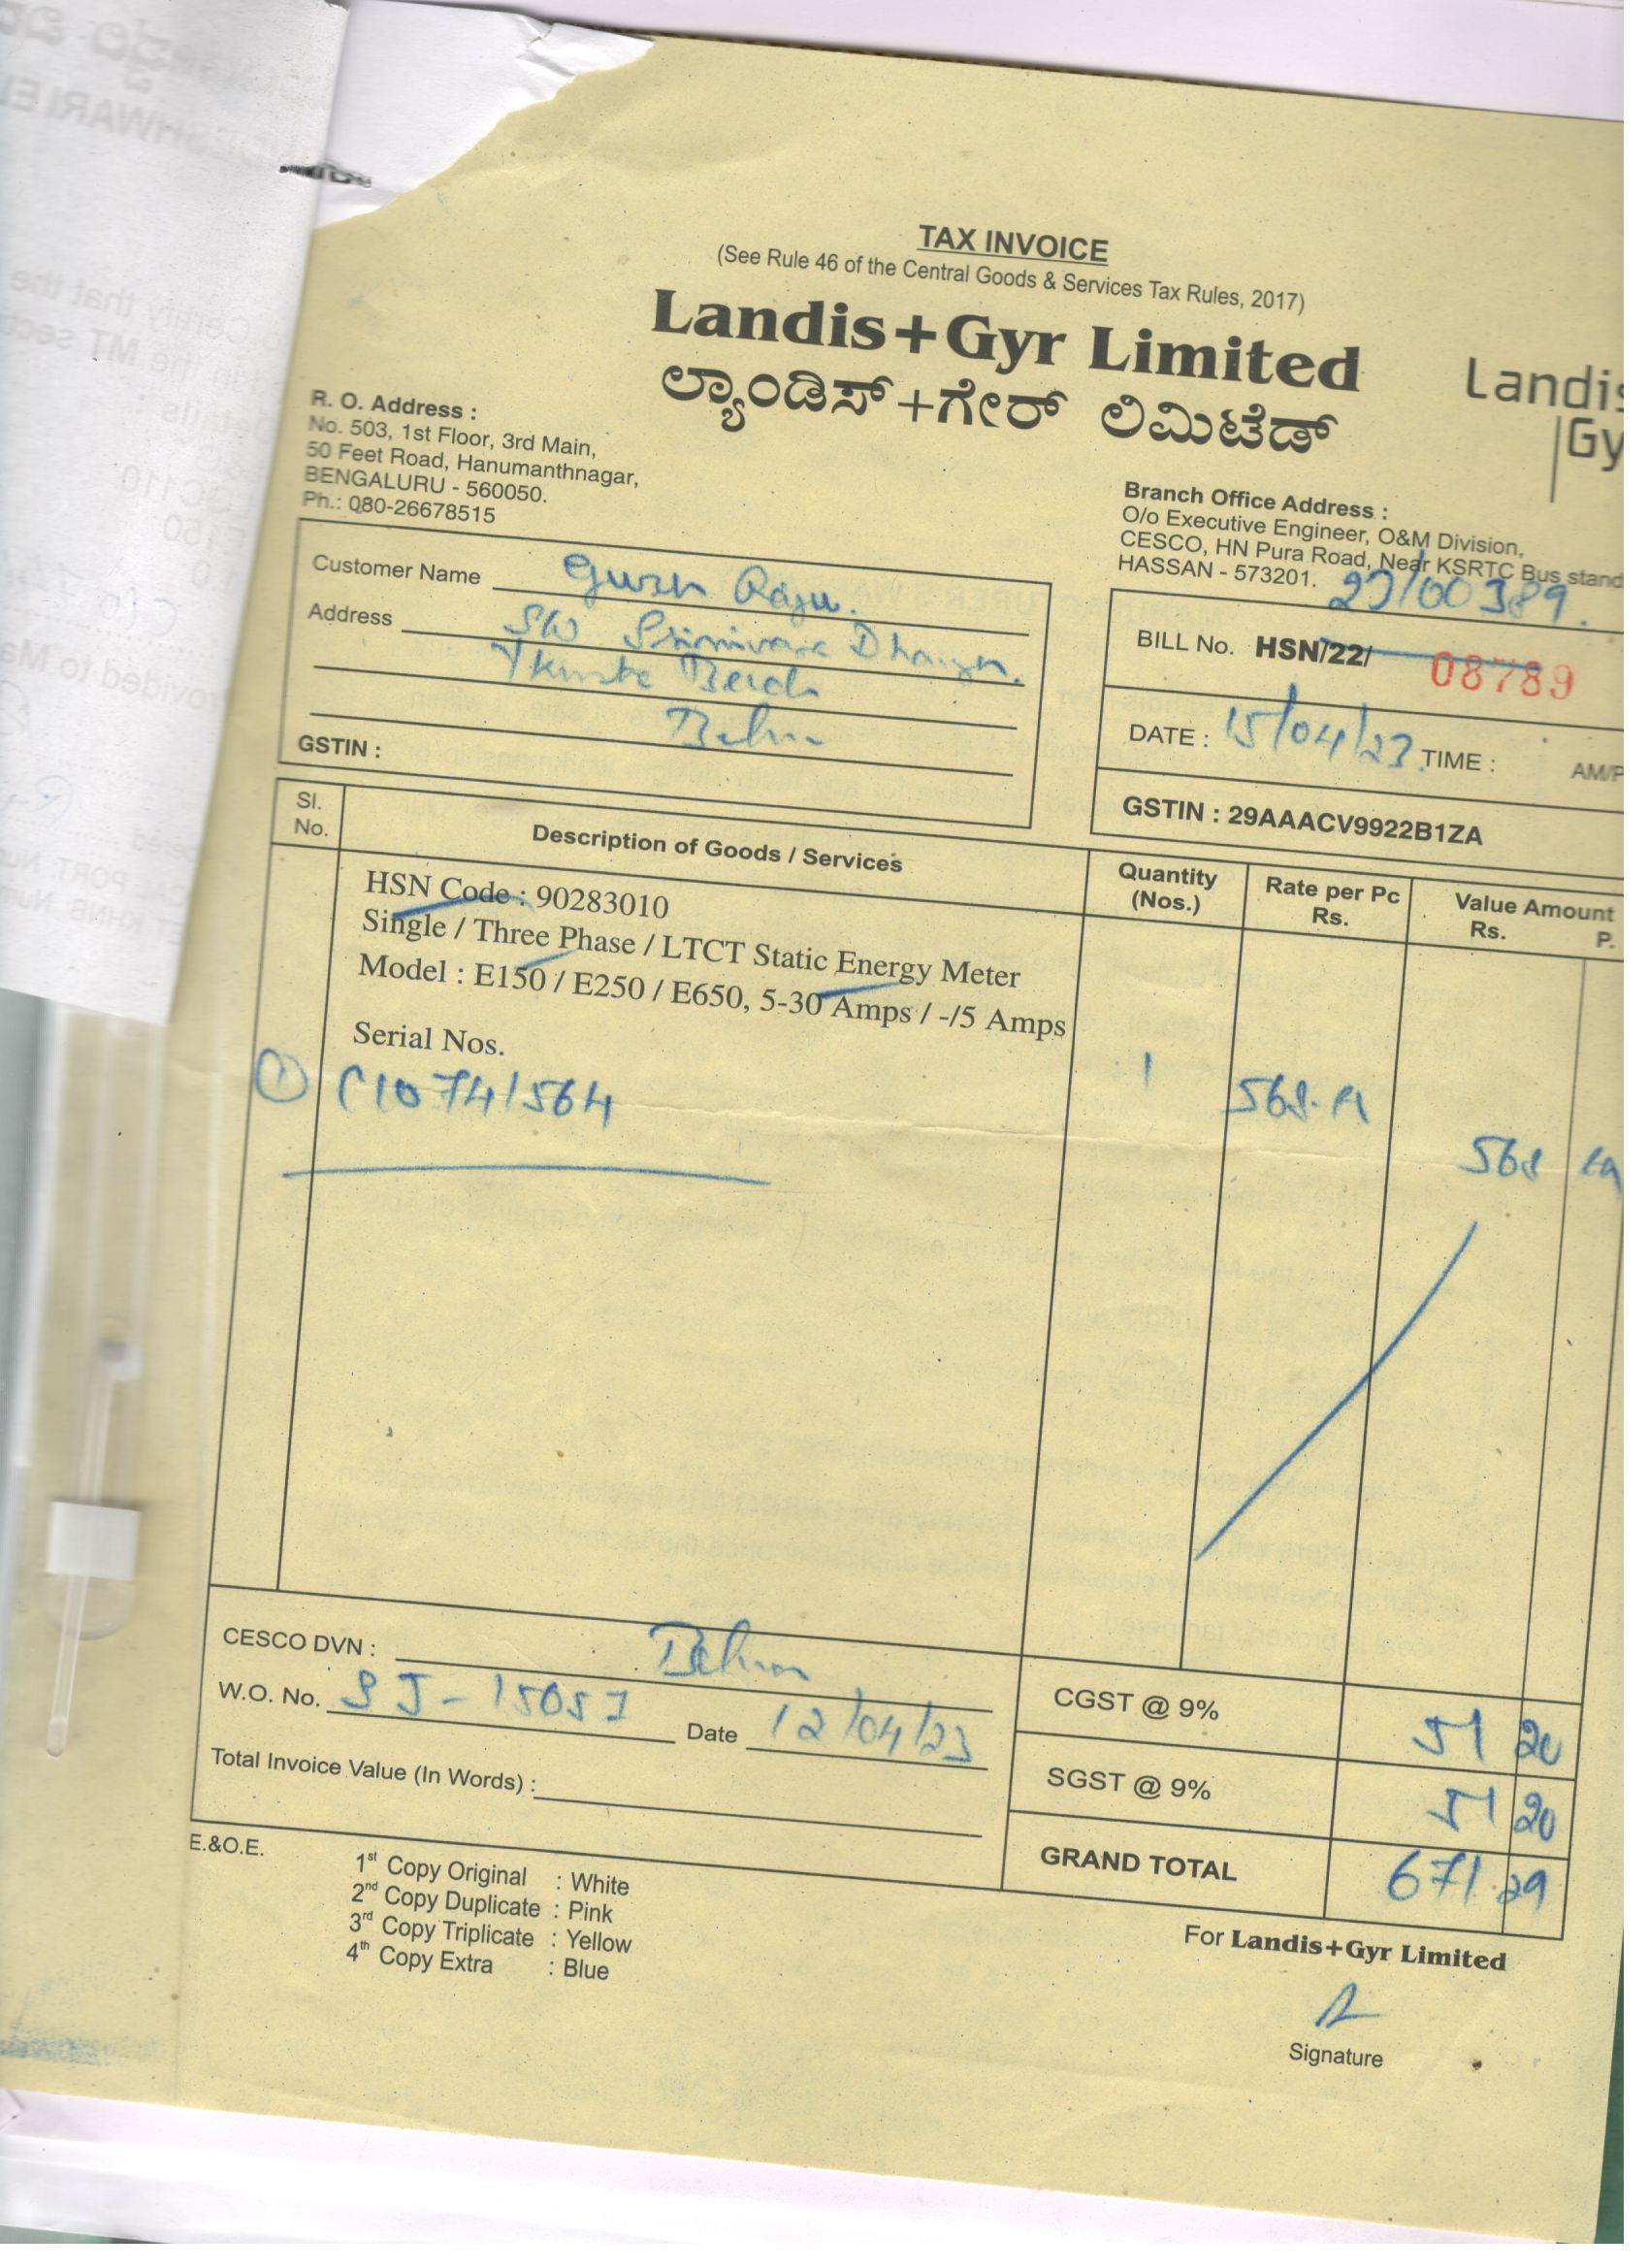 TAX INVOICE
(See Rule 46 of the Central Goods & Services Tax Rules, 2017)
Landis+Gyr Limited
ಲ್ಯಾಂಡಿಸ್+ಗೇರ್ ಲಿಮಿಟೆಡ್
Landis
Gy
R. O. Address :
No. 503, 1st Floor, 3rd Main,
50 Feet Road, Hanumanthnagar,
BENGALURU - 560050.
Ph.: 080-26678515
Branch Office Address :
O/o Executive Engineer, O&M Division,
CESCO, HN Pura Road, Near KSRTC Bus stand
HASSAN - 573201.
Customer Name Guru Raju.
Address S/o Srinivasa
GSTIN :
23/00389.
BILL No. HSN/22/ 08789
DATE : 15/04/23. TIME : AM/P
GSTIN : 29AAACV9922B1ZA
Sl. No. Description of Goods / Services Quantity (Nos.) Rate per Pc Rs. Value Amount Rs. P.
HSN Code : 90283010
Single / Three Phase / LTCT Static Energy Meter
Model : E150 / E250 / E650, 5-30 Amps / -/5 Amps
Serial Nos.
1 C10741564 1 568
568
CESCO DVN : Belur
W.O. No. SJ-15057 Date 12/04/23
Total Invoice Value (In Words) :
CGST @ 9% 51 20
SGST @ 9% 51 20
GRAND TOTAL 671.29
E.&O.E.
1st Copy Original : White
2nd Copy Duplicate : Pink
3rd Copy Triplicate : Yellow
4th Copy Extra : Blue
For Landis+Gyr Limited
Signature